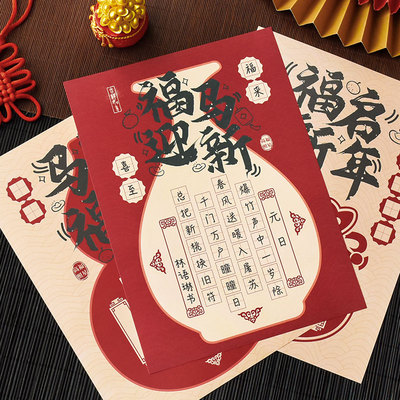 福马
迎新
福采
喜至
元日
爆竹声中一岁除
春风送暖入屠苏
千门万户瞳瞳日
总把新桃换旧符
林语琳书
福启
新年
马
福